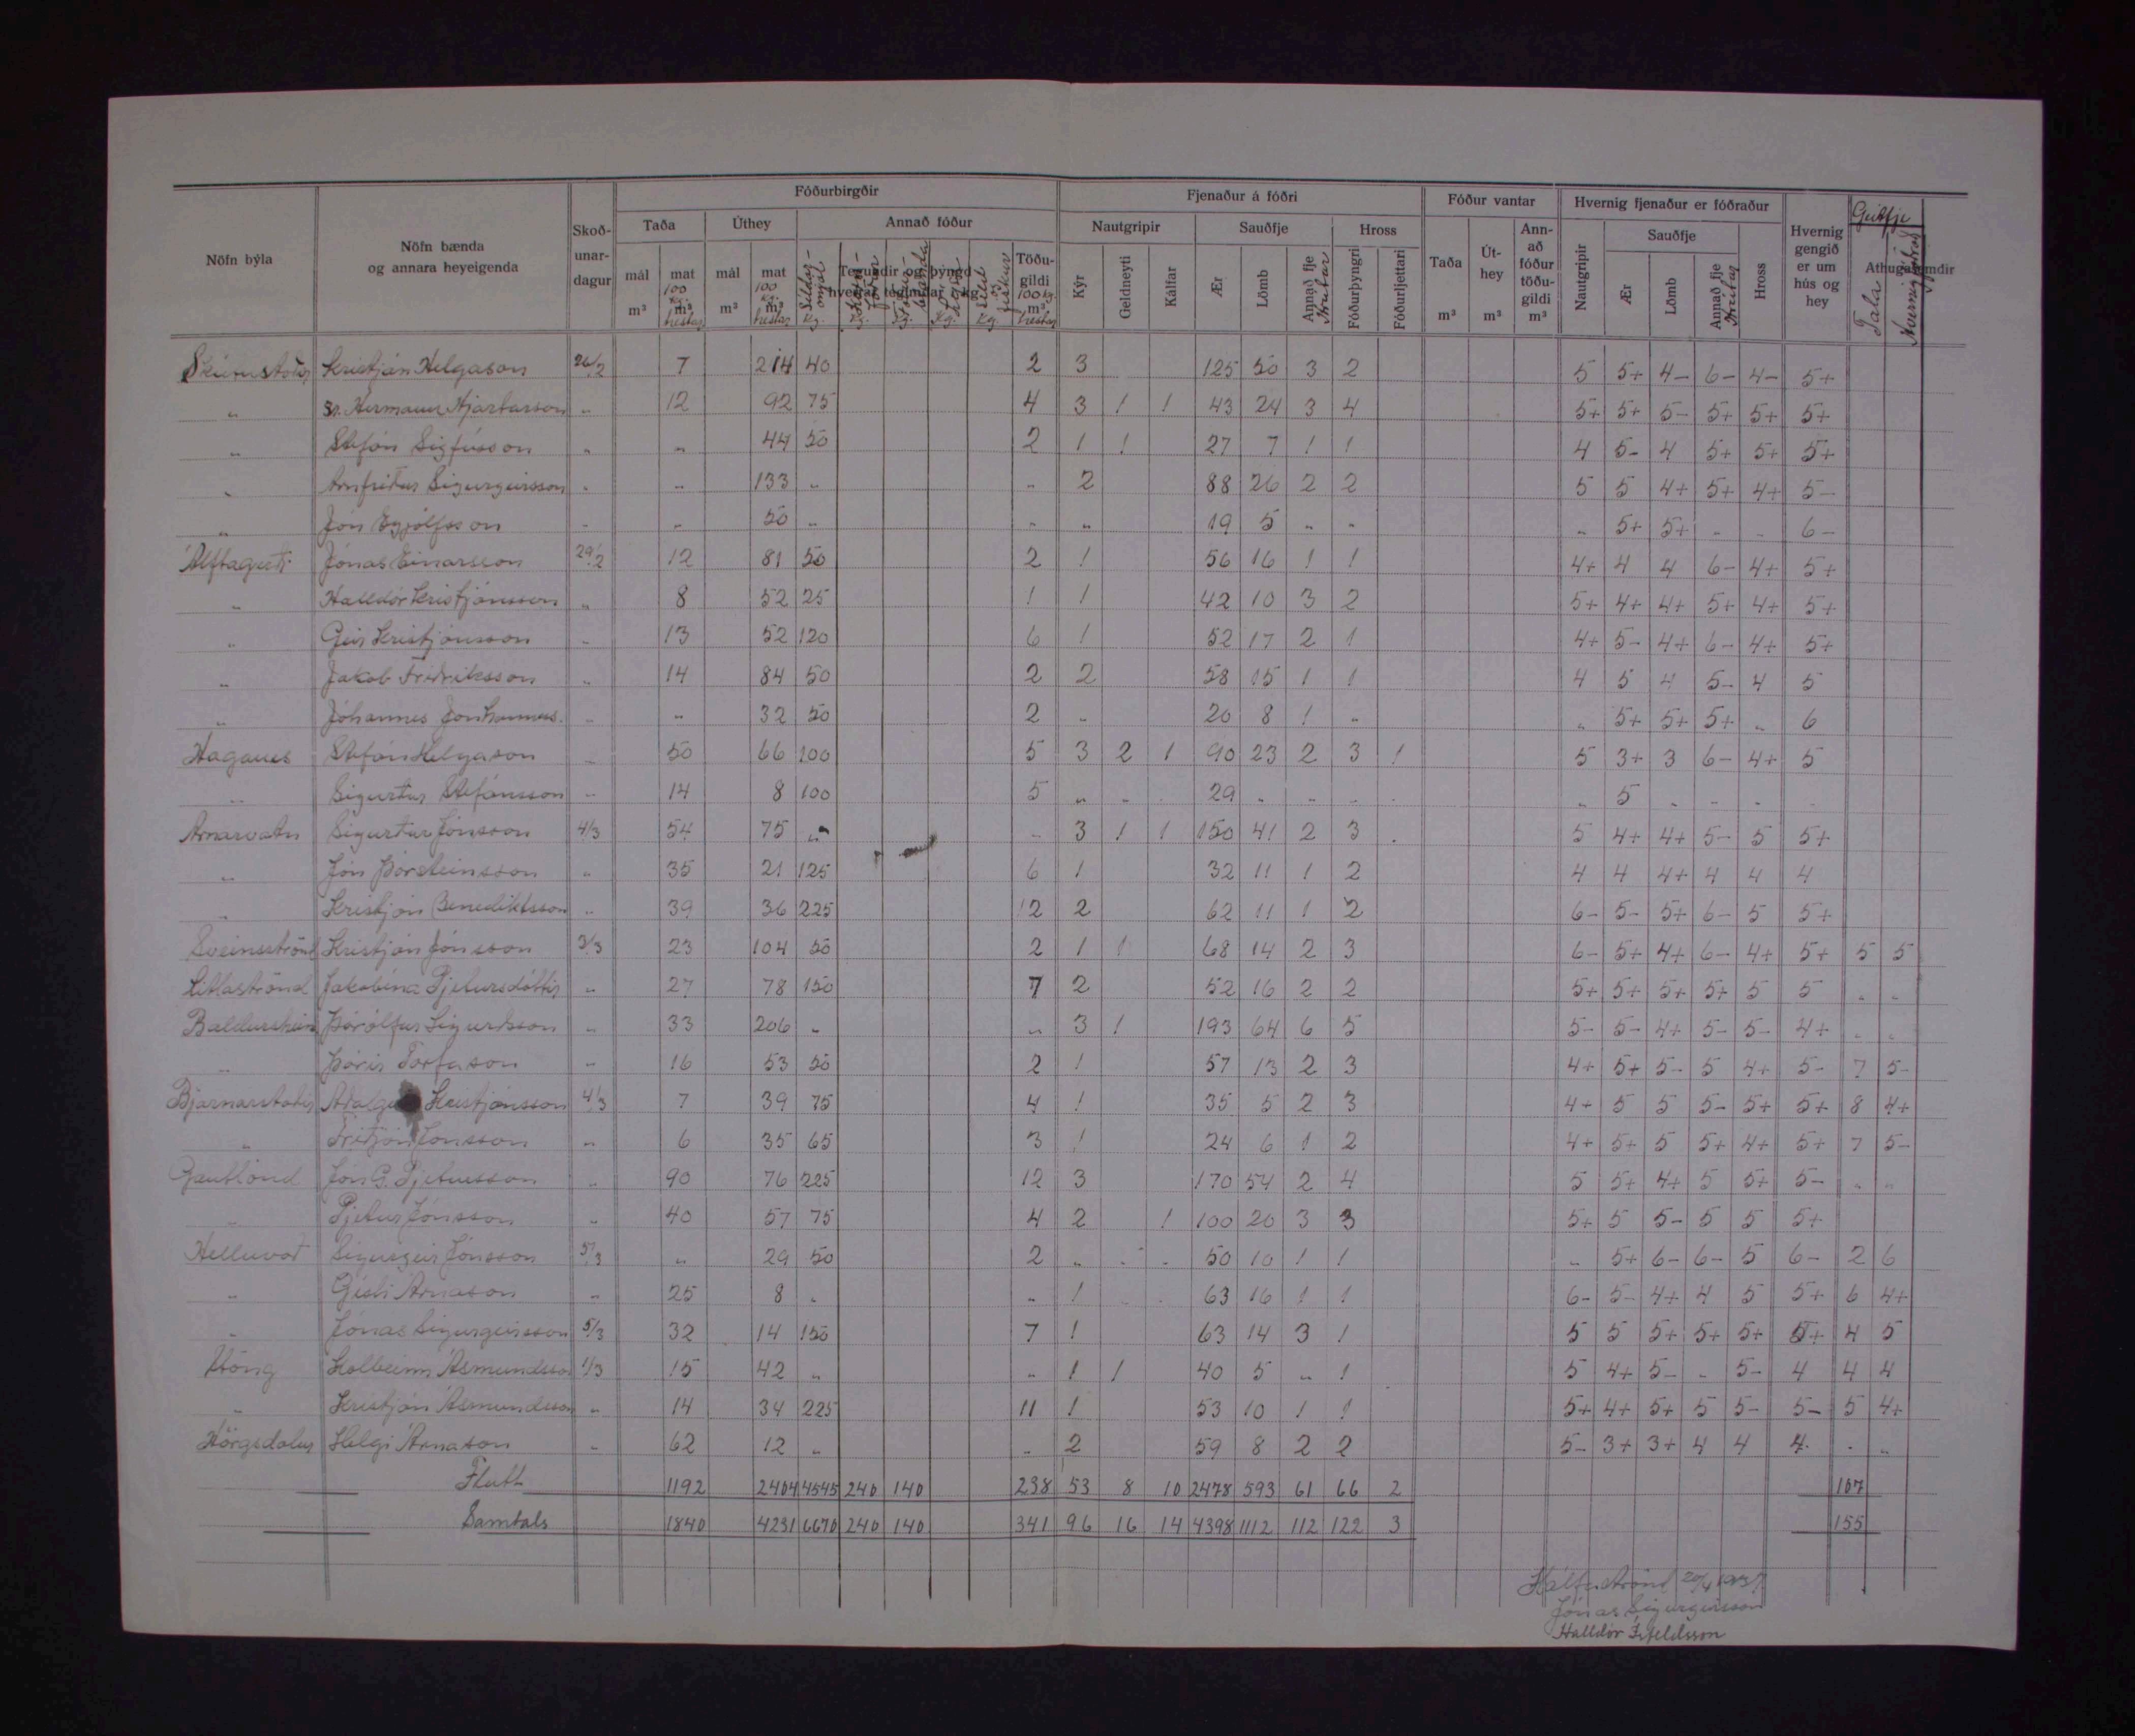 Fóðurbirgðir Fjenaður á fóðri Fóður vantar Hvernig fjenaður er fóðraður
Nöfn býla Nöfn bænda og annara heyeigenda Skoð-unar-dagur Taða Úthey Annað fóður Nautgripir Sauðfje Hross Taða Út-hey Ann-að fóður töðu-gildi m³ Nautgripir Sauðfje Hross Hvernig gengið er um hús og hey Geitfje Athugasemdir
mál m³ mat m³ 100 kg. hestar mál m³ mat m³ 100 kg. hestar Tegundir og þyngd hverrar tegundar kg. Síldar-mjöl kg. Töðu-gildi m³ 100 kg. hestar Kýr Geldneyti Kálfar Ær Lömb Annað fje Hrútar Fóðurþyngri Fóðurljettari m³ m³ Ær Lömb Annað fje Hrútar Tala Hvernig fóðrað
Skútustaðir Kristján Helgason 26/2 7 214 40 2 3 125 50 3 2 5 5+ 4- 6- 4- 5+
" Sr. Hermann Hjartarson " 12 92 75 4 3 1 1 43 24 3 4 5+ 5+ 5- 5+ 5+ 5+
" Stefán Sigfússon " " 44 50 2 1 1 27 7 1 1 4 5- 4 5+ 5+ 5+
" Arnfríður Sigurgeirsson " " 133 " " 2 88 26 2 2 5 5 4+ 5+ 4+ 5-
" Jón Eyjólfsson " " 50 " " " 19 5 " " " 5+ 5+ " " 6-
Álftagerði Jónas Einarsson 29/2 12 81 50 2 1 56 16 1 1 4+ 4 4 6- 4+ 5+
" Halldór Kristjánsson " 8 52 25 1 1 42 10 3 2 5+ 4+ 4+ 5+ 4+ 5+
" Geir Kristjánsson " 13 52 120 6 1 52 17 2 1 4+ 5- 4+ 6- 4+ 5+
" Jakob Friðriksson " 14 84 50 2 2 58 15 1 1 4 5 4 5- 4 5
" Jóhannes Jónhanness. " " 32 50 2 " 20 8 1 " " 5+ 5+ 5+ " 6
Haganes Stefán Helgason " 50 66 100 5 3 2 1 90 23 2 3 1 5 3+ 3 6- 4+ 5
" Sigurður Stefánsson " 14 8 100 5 " " . 29 " " . . " 5 " " . .
Arnarvatn Sigurður Jónsson 4/3 54 75 " " 3 1 1 150 41 2 3 . 5 4+ 4+ 5- 5 5+
" Jón Þorsteinsson " 35 21 125 6 1 32 11 1 2 4 4 4+ 4 4 4
" Kristján Benediktsson " 39 36 225 12 2 62 11 1 2 6- 5- 5+ 6- 5 5+
Sveinsströnd Kristján Jónsson 3/3 23 104 50 2 1 1 68 14 2 3 6- 5+ 4+ 6- 4+ 5+ 5 5
Litlaströnd Jakobína Pjetursdóttir " 27 78 150 7 2 52 16 2 2 5+ 5+ 5+ 5+ 5 5 " "
Baldursheim Þórólfur Sigurðsson " 33 206 " " 3 1 193 64 6 5 5- 5- 4+ 5- 5- 4+ " "
" Þórir Torfason " 16 53 50 2 1 57 13 2 3 4+ 5+ 5- 5 4+ 5- 7 5-
Bjarnarstaðir Kristjánsson 4/3 7 39 75 4 1 35 5 2 3 4+ 5 5 5- 5+ 5+ 8 4+
" Friðjón Jónsson " 6 35 65 3 1 24 6 1 2 4+ 5+ 5 5+ 4+ 5+ 7 5-
Gautlönd Jón G. Pjetursson " 90 76 225 12 3 170 54 2 4 5 5+ 4+ 5 5+ 5- " "
" Pjetur Jónsson " 40 57 75 4 2 1 100 20 3 3 5+ 5 5- 5 5 5+
Helluvað Sigurgeir Jónsson 5/3 " 29 50 2 " " . 50 10 1 1 " 5+ 6- 6- 5 6- 2 6
" Gísli Árnason " 25 8 " " 1 63 16 1 1 6- 5- 4+ 4 5 5+ 6 4+
" Jónas Sigurgeirsson 5/3 32 14 150 7 1 63 14 3 1 5 5 5+ 5+ 5+ 5+ 4 5
Stöng Kolbeinn Ásmundsson 1/3 15 42 " " 1 1 40 5 " 1 5 4+ 5- " 5- 4 4 4
" Kristján Ásmundsson " 14 34 225 11 1 53 10 1 1 5+ 4+ 5+ 5 5- 5- 5 4+
Hörgsdalur Helgi Árnason " 62 12 " " 2 59 8 2 2 5- 3+ 3+ 4 4 4 . "
Flutt 1192 2404 4545 240 140 238 53 8 10 2478 593 61 66 2 107
Samtals 1840 4231 6670 240 140 341 96 16 14 4398 1112 112 122 3 155
Kálfaströnd 20/4
Jónas Sigurgeirsson
Halldór Ísfeldsson